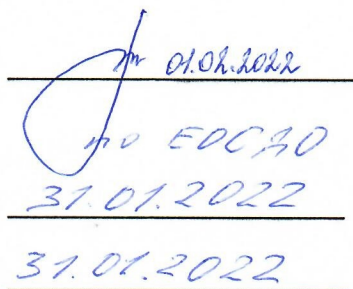 01.02.2022
по ЕОСДО
31.01.2022
31.01.2022